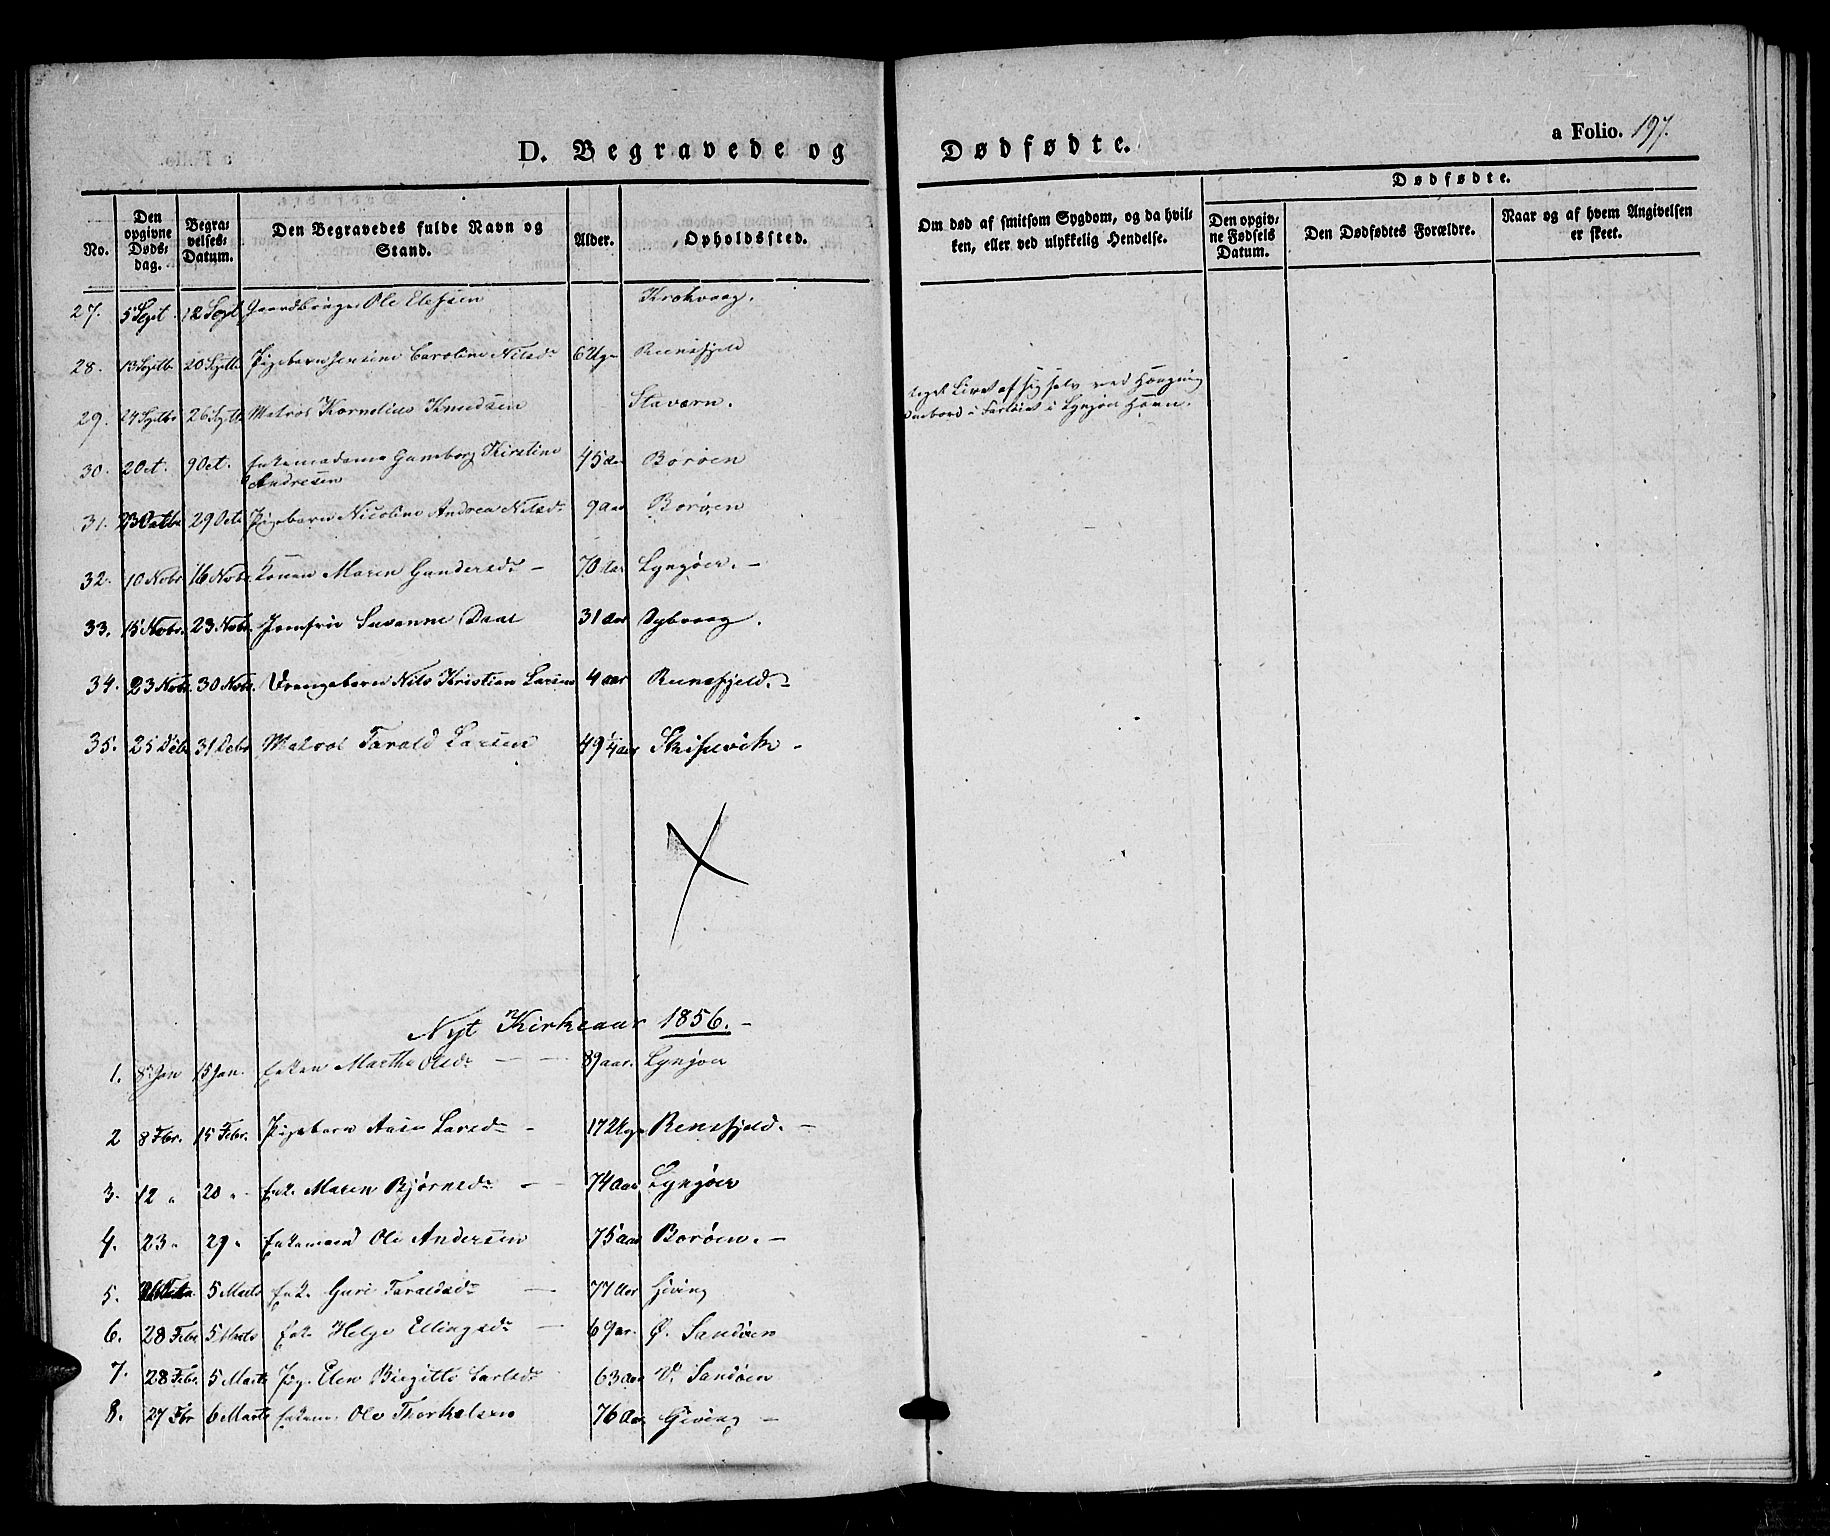 D. Begravede og Dødfødte.
a Folio. 197.
No. Den opgivne Døds-dag. Begra-velses-Datum. Den Begravedes fulde Navn og Stand. Alder. Opholdssted. Om død af smitsom Sygdom, og da hvil-ken, eller ved ulykkelig Hendelse. Dødfødte. Den opgiv-ne Fødsels Datum. Den Dødfødtes Forældre. Naar og af hvem Angivelsen er skeet.
27. 5 Sept. 12 Sept Gaardbruger Ole Elefsen Krokvaag.
28. 13 Septb 20 Septb Pigebarn Jensine Caroline Nilsd. 6 Uge Reensfjeld
29. 24 Septbr 26 Septb Matros Kornelius Knudsen Staværn. taget Livet af sig selv ved Hængning
ombord i Fartøiet i Lyngør Havn.
30. 2 Oct. 9 Oct. Enkemadame Gunborg Kirstine 45 aar Borøen
Andresen
31. 23 Octbr 29 Octb Pigebarn Nicoline Andrea Nilsdr 9 aar Borøen
32. 10 Nobr 16 Nobr Konen Maren Gundersdr - 70 aar Lyngøer. -
33. 15 Nobr. 23 Nobr. Jomfru Susanne Daae 31 aar Dybvaag.
34. 23 Nobr. 30 Nobr. Drengebarn Nils Kristian Larsen 4 aar Reensfjeld. -
35. 25 Debr 31 Debr Matros Tarald Larsen 49 1/4 aar Skiselvik -
Nyt Kirkeaar 1856. -
1. 8 Jan 15 Jan. Enken Marthe Olsdr - - 89 aar. Lyngøer
2 8 Febr. 15 Febr. Pigebarn Aase Larsdr - 17 Uge Rensfjeld. -
3. 12 " 20 " Enke Maren Bjørnsdr - - 74 aar Lyngøer
4. 23 " 29 " Enkemand Ole Andersen 75 aar Borøen. -
5. 5 Marts Enke Guri Taraldsdr - 77 aar Giving
6. 28 Febr 5 Marts Enke Helge Ellingsdr - 69 ar. Ø. Sandøen
7. 28 Febr. 5 Marts Pig. Elen Birgitte Larsdr 63 aar V. Sandøen
8. 27 Fbr 6 Marts Enkem. Ole Thorkelsen 76 aar Giving -